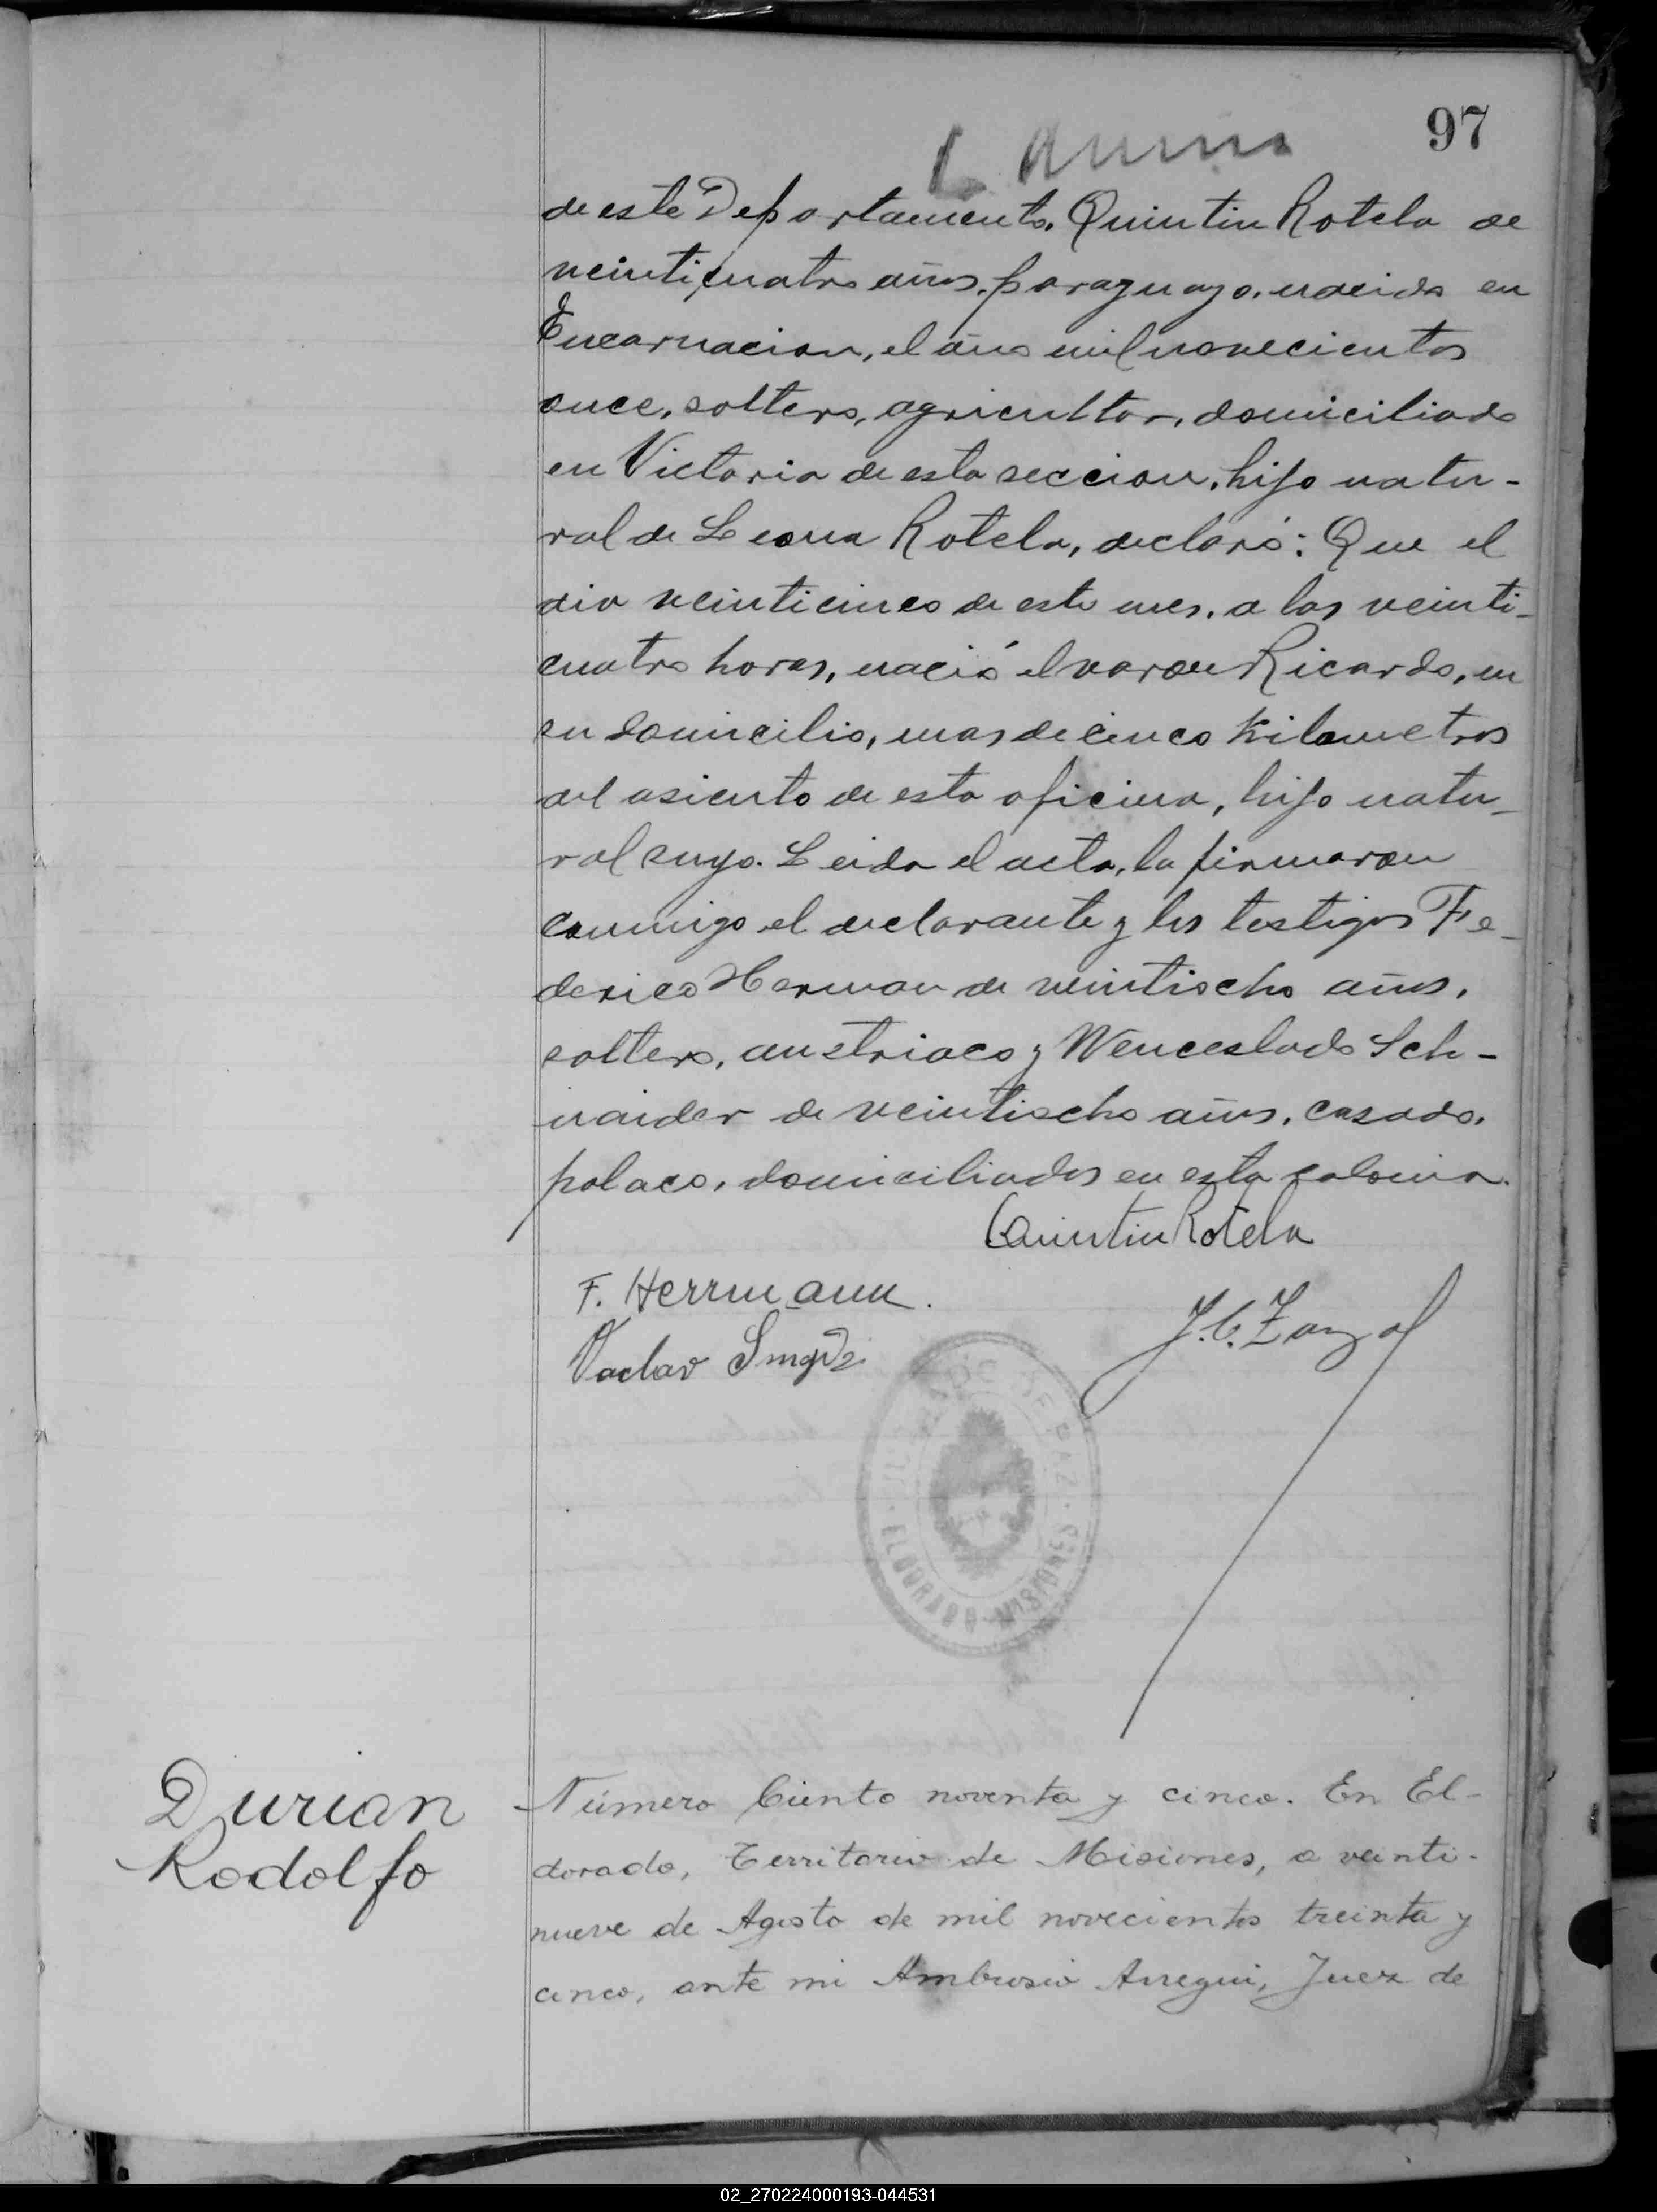 97
de este Departamento. Quintin Rotela de
veinticuatro años, paraguayo, nacido en
Encarnacion, el año mil novecientos
once, soltero, agricultor, domiciliado
en Victoria de esta seccion, hijo natu-
ral de Leona Rotela, declaró: Que el
dia veinticinco de este mes, a las veinti-
cuatro horas, nació el varon Ricardo, en
su domicilio, mas de cinco Kilometros
del asiento de esta oficina, hijo natu-
ral suyo. Leida el acta, la firmaron
conmigo el declarante y los testigos Fe-
derico Herman de veintiocho años,
soltero, austriaco y Wenceslado Sch-
naider de veintiocho años, casado,
polaco, domiciliados en esta colonia.
Quintin Rotela
F. Herrmann.
Vaclav
JUZGADO DE PAZ
ELDORADO - MISIONES
Durian
Rodolfo
Número Ciento noventa y cinco. En El-
dorado, Territorio de Misiones, a veinti-
nueve de Agosto de mil novecientos treinta y
cinco, ante mi Ambrosio Arregui, Juez de
02_270224000193-044531